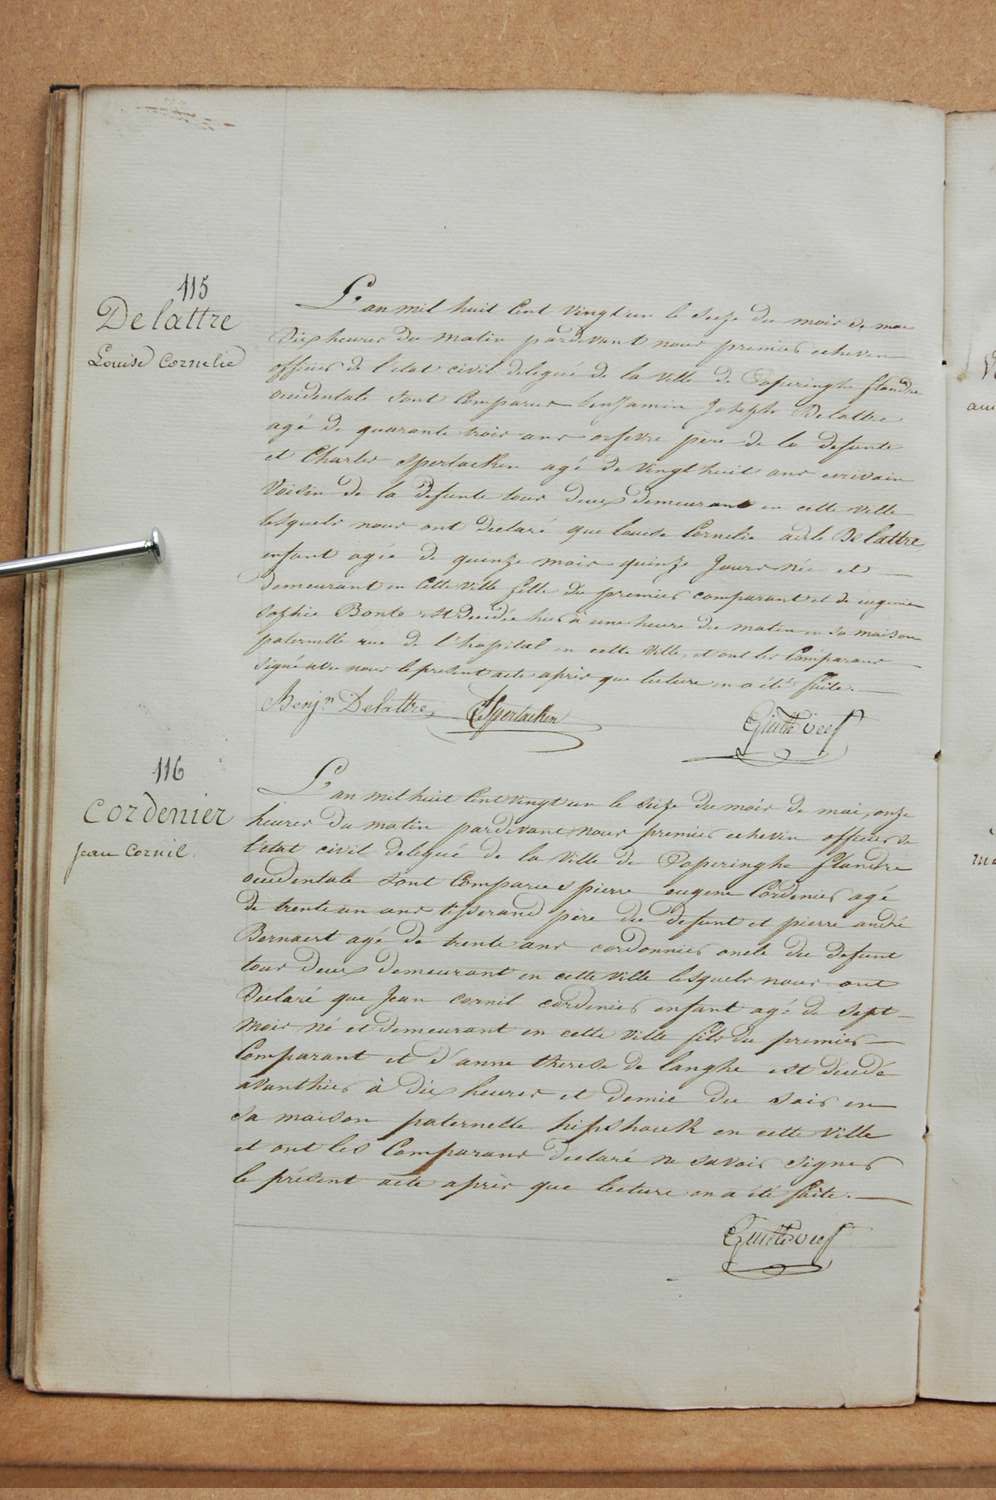 115
Delattre
Louise Cornelie
L'an mil huit Cent vingt un le Seize du mois de mai
Dix heures du matin pardevant nous premier echevin
officier de l'etat civil delegué de la ville de Poperinghe flandre
occidentale sont Comparus benjamin Joseph Delattre
agé de quarante trois ans orfevre père de la defunte
et Charles Sperlaeken agé de vingt huit ans ecrivain
Voisin de la defunte tous deux demeurant en cette ville
lesquels nous ont declaré que louise Cornelie adele Delattre
enfant agée de quinze mois quinze Jours née et
demeurant en Cette ville fille du premier comparant et de eugenie
Sophie Bonte est decedée hier à une heure du matin en sa maison
paternelle rue de l'hopital en cette ville, et ont les Comparans
signé avec nous le present acte après que lecture en a été faite.
Benjn Delattre C. Sperlaeken
116
Cordenier
Jean Cornil.
L'an mil huit Cent vingt un le Seize du mois de mai, onze
heures du matin pardevant nous premier echevin officier de
l'etat civil delegué de la Ville de Poperinghe flandre
occidentale sont Comparus pierre eugene Cordenier agé
de trente un ans tisserand père du defunt et pierre andré
Bernaert agé de trente ans cordonnier oncle du defunt
tous deux demeurant en cette ville lesquels nous ont
Declaré que Jean cornil cordenier enfant agé de sept
mois né et demeurant en cette ville fils du premier
Comparant et d'anne therese de langhe est décédé
avanthier à dix heures et demie du soir en
sa maison paternelle en cette ville
et ont les Comparans declaré ne savoir signer
le présent acte après que lecture en a été faite.